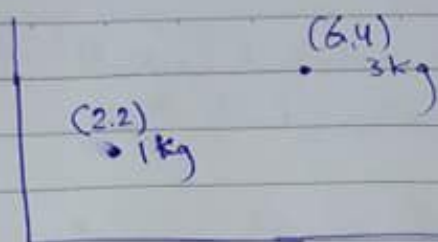 (6,4)
3kg
(2.2)
1kg